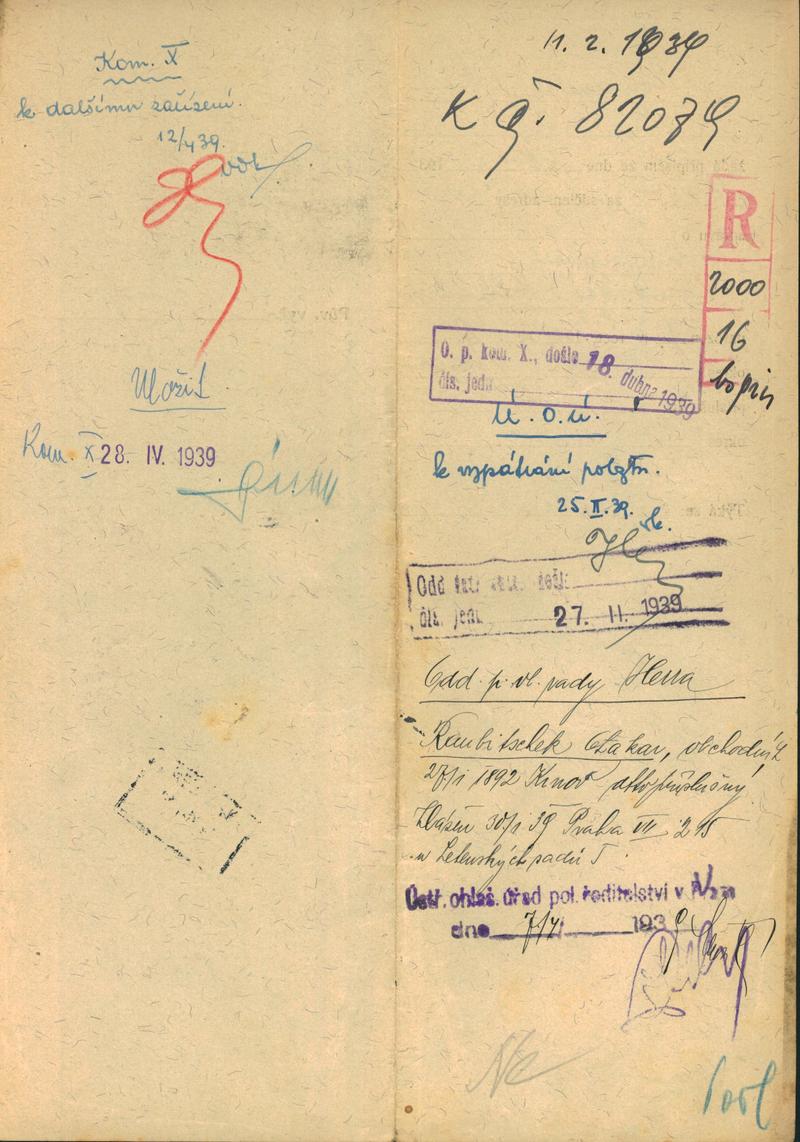 Kom. X
k dalšímu zařízení.
12/4 39.
Uložit
Kom. X 28. IV. 1939
11. 2. 1939
K č. 82079
R
2000
16
O. p. kom. X., došlo 18. dubna 1939
čís. jedn.
Ú. O. Ú.
k vypátrání pobytu.
25.II.39.
Odd
čís. jedn. 27. II. 1939
Odd. p. vl. rady Herra
Raubitschek Otakar, obchodník
27/1 1892 Krnov dtto příslušný
Hlášen 30/1 39 Praha VII 215
u Letenských sadů 5
Ústř. ohlaš. úřad pol. ředitelství v
dne 7/4 1939